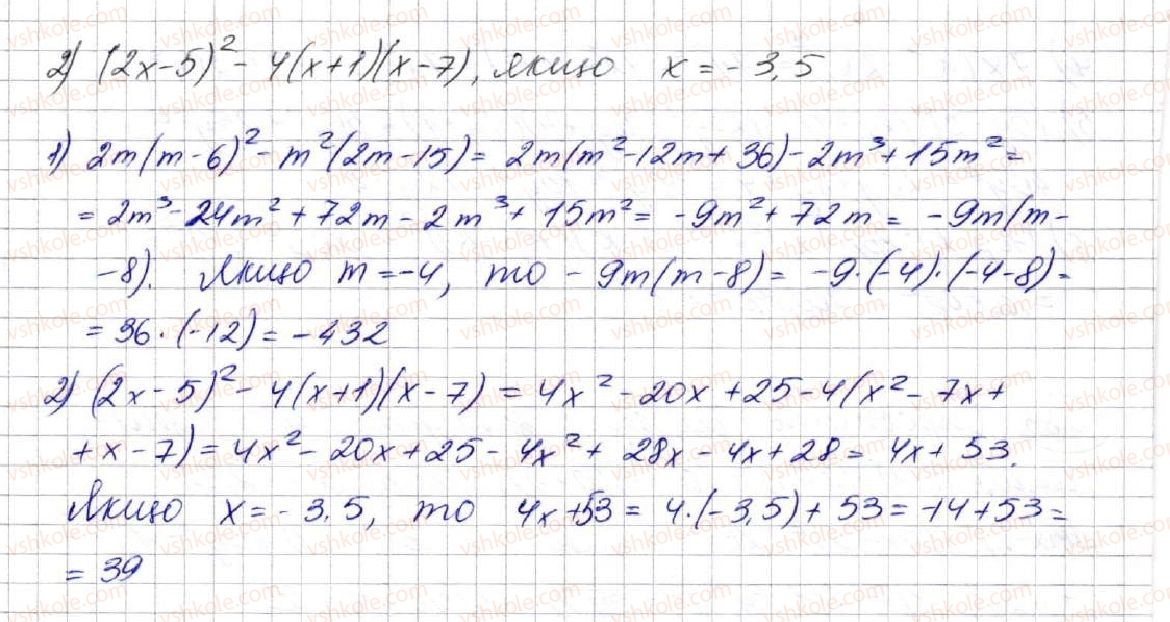 2) (2x-5)² - 4(x+1)(x-7), якщо x = - 3,5
1) 2m(m-6)² - m²(2m-15) = 2m(m²-12m+36) - 2m³ + 15m² =
= 2m³ - 24m² + 72m - 2m³ + 15m² = -9m² + 72m = -9m(m-
-8). Якщо m = -4, то -9m(m-8) = -9·(-4)·(-4-8) =
= 36·(-12) = -432
2) (2x-5)² - 4(x+1)(x-7) = 4x² - 20x + 25 - 4(x² - 7x +
+ x - 7) = 4x² - 20x + 25 - 4x² + 28x - 4x + 28 = 4x + 53.
Якщо x = - 3,5, то 4x + 53 = 4·(-3,5) + 53 = -14 + 53 =
= 39